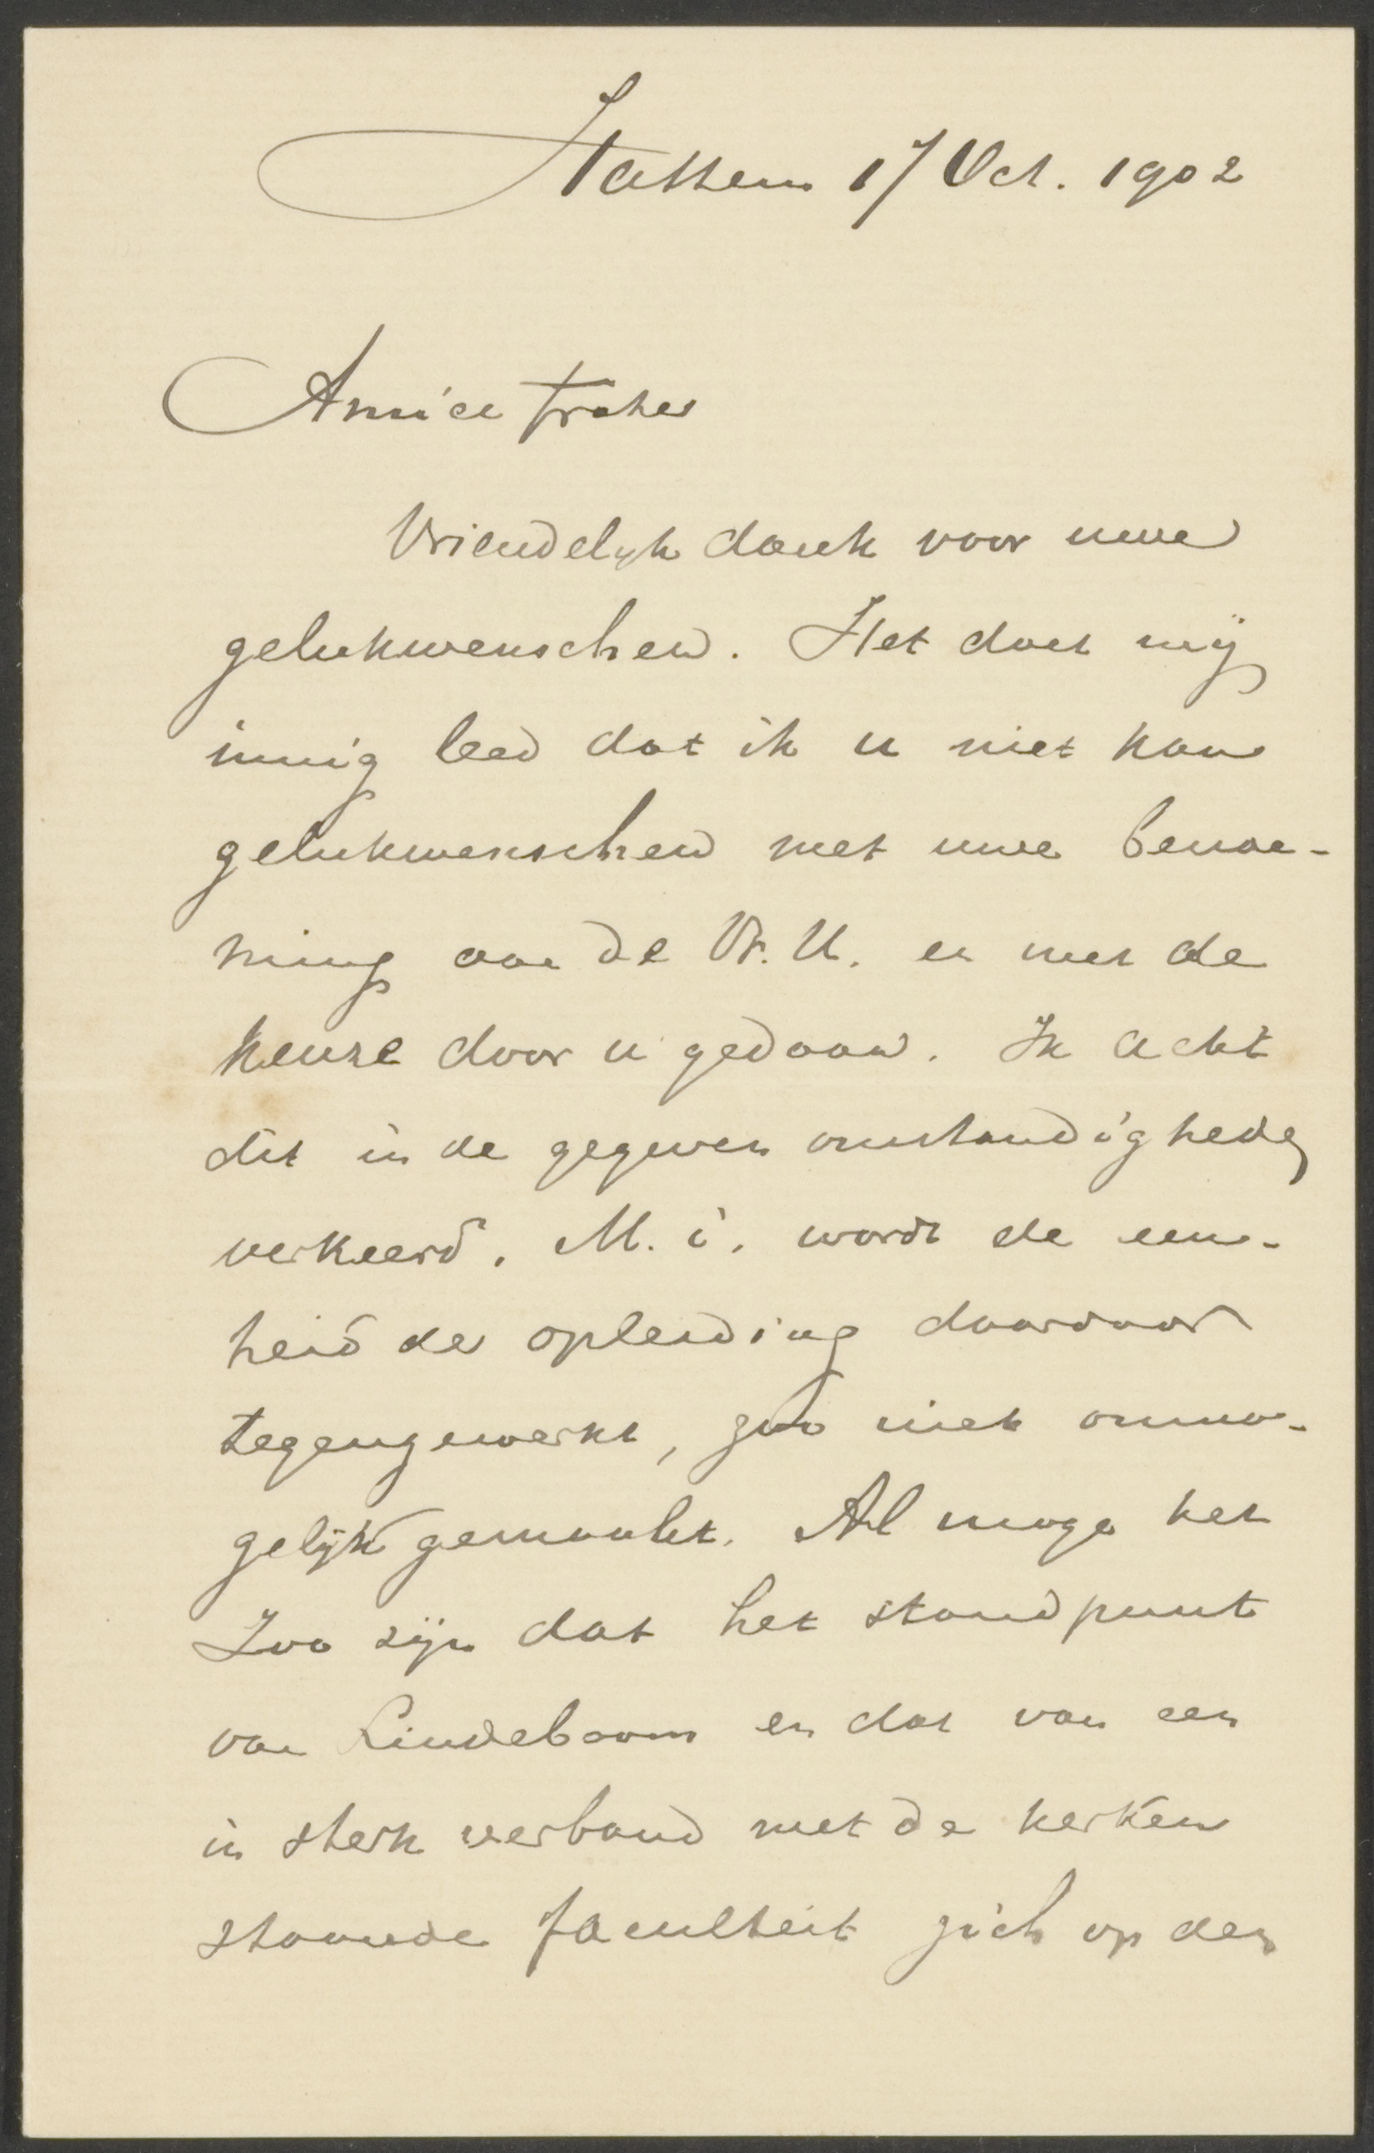 Hattem 17 Oct. 1902
Amice frater
Vriendelijk dank voor uwe
gelukwenschen. Het doet mij
innig leed dat ik u niet kan
gelukwenschen met uwe benoe-
ming aan de Vr. U. en met de
keuze door u gedaan. Ik acht
dit in de gegeven omstandigheden
verkeerd. M. i. wordt de een-
heid der opleiding daardoor
tegengewerkt, zoo niet onmo-
gelijk gemaakt. Al moge het
Zoo zijn dat het standpunt
van Lindeboom en dat van een
in sterk verband met de kerken
staande faculteit zich op den